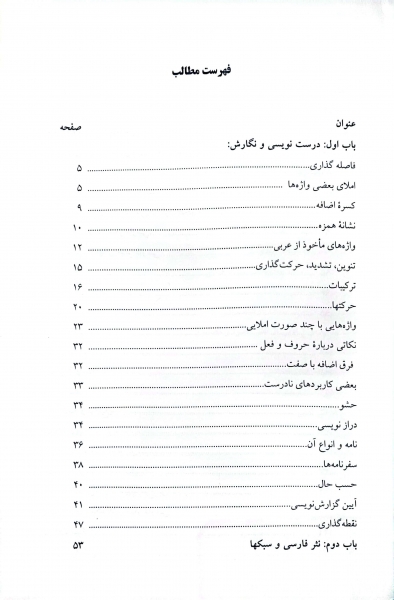 فهرست مطالب
عنوان
صفحه
باب اول: درست نویسی و نگارش:
فاصله گذاری ۵
املای بعضی واژه‌ها ۵
کسرهٔ اضافه ۹
نشانهٔ همزه ۱۰
واژه‌های مأخوذ از عربی ۱۲
تنوین، تشدید، حرکت‌گذاری ۱۵
ترکیبات ۱۶
حرکتها ۲۰
واژه‌هایی با چند صورت املایی ۲۳
نکاتی دربارهٔ حروف و فعل ۳۲
فرق اضافه با صفت ۳۲
بعضی کاربردهای نادرست ۳۳
حشو ۳۴
دراز نویسی ۳۴
نامه و انواع آن ۳۶
سفرنامه‌ها ۳۸
حسب حال ۴۰
آیین گزارش‌نویسی ۴۱
نقطه‌گذاری ۴۷
باب دوم: نثر فارسی و سبکها ۵۳